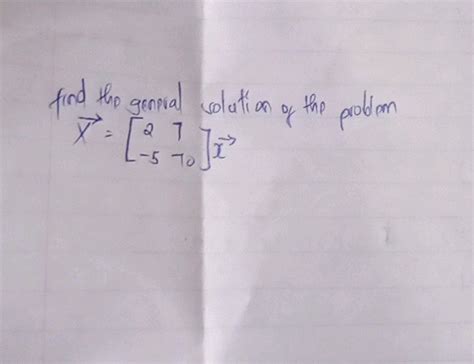 find the general solution of the problem
X⃗ = [2 7
-5 -10] x⃗